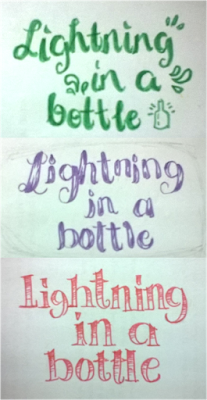 Lightning
in a
bottle
Lightning
in a
bottle
Lightning
in a
bottle